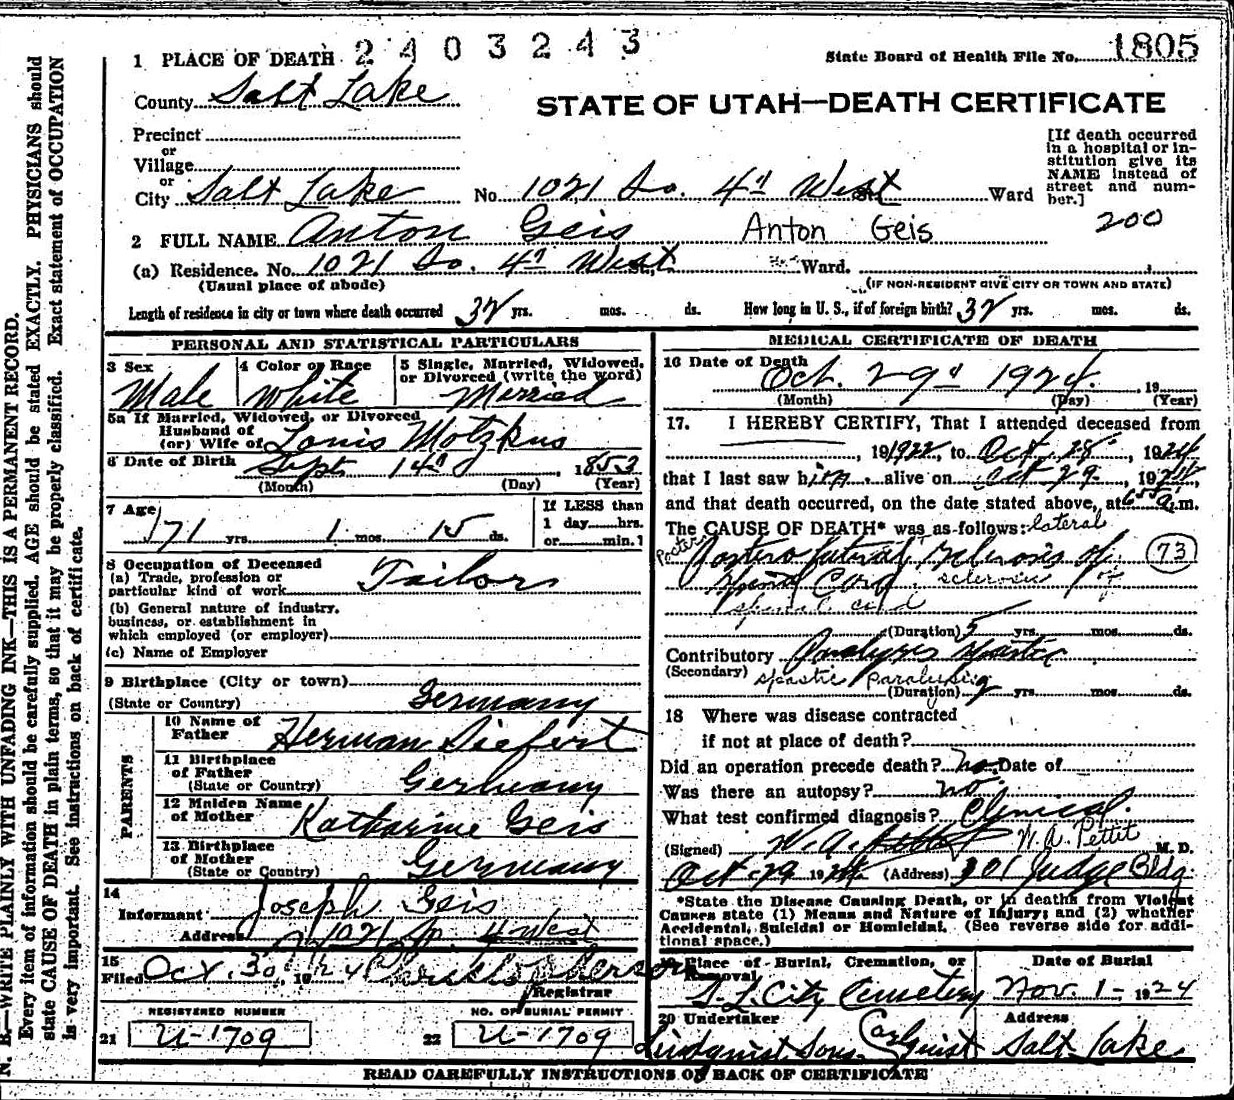 N. B.—WRITE PLAINLY WITH UNFADING INK—THIS IS A PERMANENT RECORD.
Every item of information should be carefully supplied. AGE should be stated EXACTLY. PHYSICIANS should
state CAUSE OF DEATH in plain terms, so that it may be properly classified. Exact statement of OCCUPATION
is very important. See instructions on back of certificate.
1 PLACE OF DEATH 2403243
State Board of Health File No. 1805
County Salt Lake
STATE OF UTAH—DEATH CERTIFICATE
Precinct
or
Village
or
City Salt Lake No. 1021 So. 4th West St. Ward
[If death occurred
in a hospital or in-
stitution give its
NAME instead of
street and num-
ber.]
200
2 FULL NAME Anton Geis Anton Geis
(a) Residence. No. 1021 So. 4th West St. Ward.
(Usual place of abode) (IF NON-RESIDENT GIVE CITY OR TOWN AND STATE)
Length of residence in city or town where death occurred 32 yrs. mos. ds. How long in U. S., if of foreign birth? 32 yrs. mos. ds.
PERSONAL AND STATISTICAL PARTICULARS
3 Sex 4 Color or Race 5 Single, Married, Widowed,
or Divorced (write the word)
Male White Married
5a If Married, Widowed, or Divorced
Husband of
(or) Wife of Louis Motzkus
6 Date of Birth Sept 14th, 1853
(Month) (Day) (Year)
7 Age 71 yrs. 1 mos. 15 ds.
If LESS than
1 day hrs.
or min.?
8 Occupation of Deceased
(a) Trade, profession or
particular kind of work Tailor
(b) General nature of industry.
business, or establishment in
which employed (or employer)
(c) Name of Employer
9 Birthplace (City or town)
(State or Country) Germany
PARENTS
10 Name of
Father Herman Siefert
11 Birthplace
of Father
(State or Country) Germany
12 Maiden Name
of Mother Katharine Geis
13 Birthplace
of Mother
(State or Country) Germany
14
Informant Joseph Geis
Address 1021 So. 4 West
15
Filed Oct. 30, 1924
Registrar
REGISTERED NUMBER NO. OF BURIAL PERMIT
21 U-1709 22 U-1709
MEDICAL CERTIFICATE OF DEATH
16 Date of Death
Oct. 29th 1924. 19
(Month) (Day) (Year)
17. I HEREBY CERTIFY, That I attended deceased from
, 191922, to Oct 28, 1924
that I last saw him alive on Oct 29, 1924,
and that death occurred, on the date stated above, at 6 55 a.m.
The CAUSE OF DEATH* was as follows: lateral
Postero lateral Sclerosis of 73
Spinal Cord sclerosis of
spinal cord
(Duration) 5 yrs. mos. ds.
Contributory Paralysis Spastic
(Secondary) spastic paralysis
(Duration) yrs. mos. ds.
18 Where was disease contracted
if not at place of death?
Did an operation precede death? No Date of
Was there an autopsy? No
What test confirmed diagnosis? Clinical.
(Signed) W. A. Pettit W. A. Pettit M. D.
Oct 29 1924. (Address) 301 Judge Bldg.
*State the Disease Causing Death, or in deaths from Violent
Causes state (1) Means and Nature of Injury; and (2) whether
Accidental, Suicidal or Homicidal. (See reverse side for addi-
tional space.)
19 Place of Burial, Cremation, or Date of Burial
Removal
S. L. City Cemetery Nov. 1- 1924
20 Undertaker Address
Lindquist Sons Salt Lake
READ CAREFULLY INSTRUCTIONS ON BACK OF CERTIFICATE